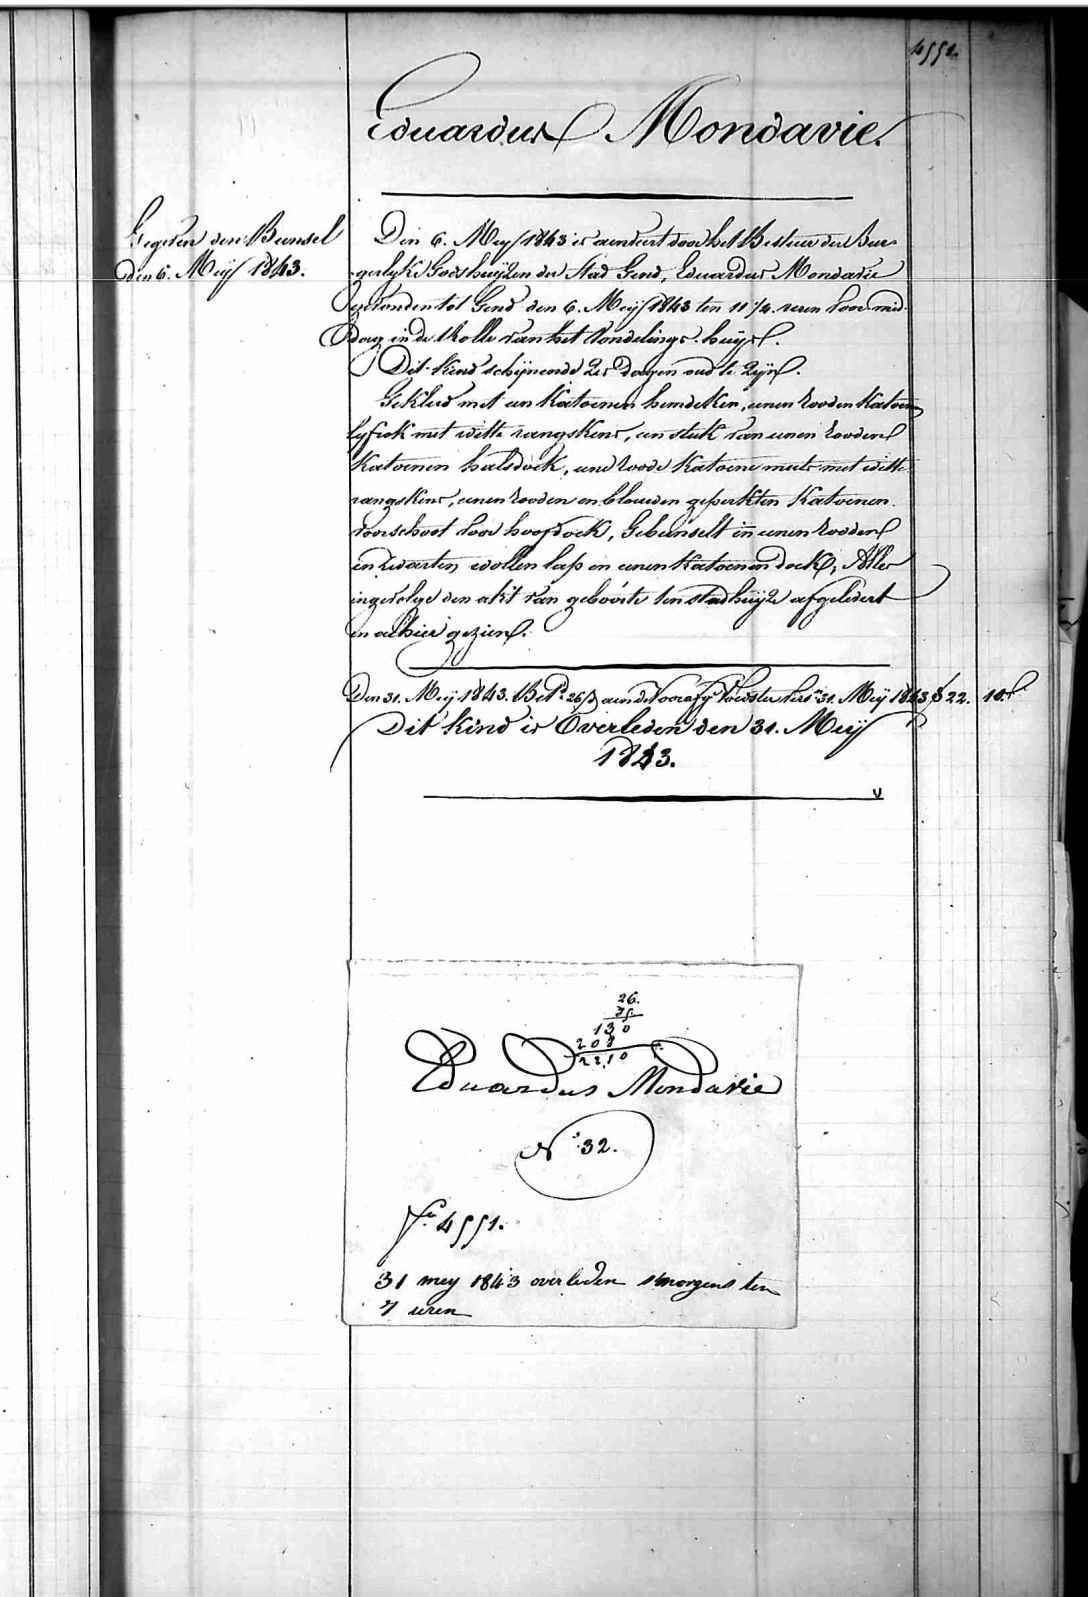 4551.
Eduardus Mondavie.
Gegeven den Bunsel
den 6. Meij 1843.
Den 6. Meij 1843 is aenveert door het Bestuer der Bur-
gerlyke Godshuijzen der Stad Gend, Eduardus Mondavie
gevonden tot Gend den 6. Meij 1843 ten 11 1/4 uren voor mid-
dag in de Rolle van het Vondelings-huijs.
Dit kind schijnende zes dagen oud te zijn.
Gekleed met een katoenen hemdeken, eenen rooden katoen
lyfrok met witte rangskens, een stuk van eenen rooden
katoenen halsdoek, eene roode katoene muts met witte
rangskens, eenen rooden en blauwen geperkten katoenen
voorschoot voor hoofdoek, Gebunselt in eenen rooden
en zwarten wollen lap en eenen katoenen doek; Alles
ingevolge den akt van geboorte ten stadhuijze afgelevert
en alhier gezien.
Den 31. Meij 1843. Bet. 26 aen de Voorafg. Voedster 31. Meij 1843 22. 10.
Dit kind is Overleden den 31. Meij
1843.
26.
85.
130
208
22,10
Eduardus Mondavie
N° 32.
f° 4551.
31 mey 1843 overleden s'morgens ten
7 uren